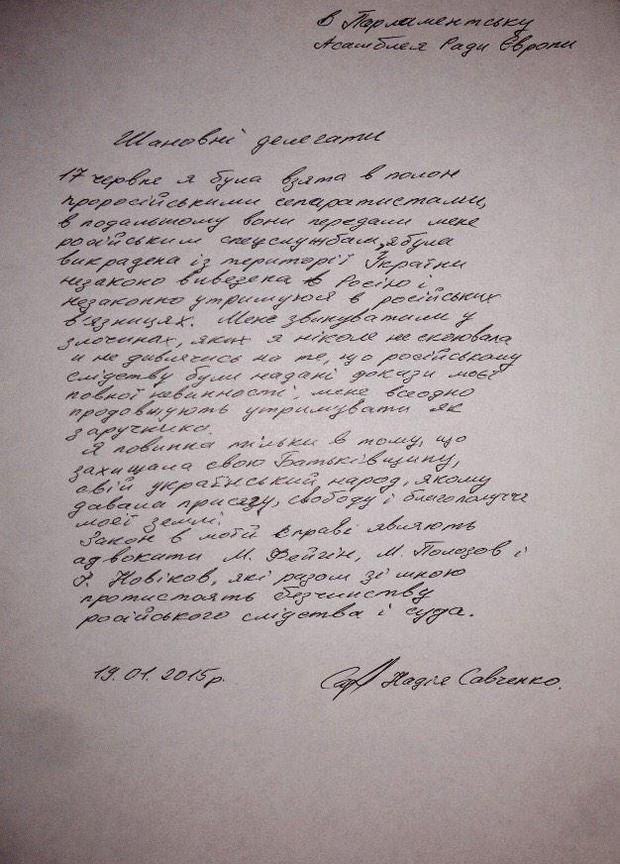 в Парламентську
Асамблея Ради Європи
Шановні делегати
17 червне я була взята в полон
проросійськими сепаратистами,
в подальшому вони передали мене
російським спецслужбам, я була
викрадена із території України
незаконо вивезена в Росію і
незаконно утримуюся в російських
в'язницях. Мене звинуватили у
злочинах, яких я ніколе не скоювала
и не дивлячись на те, що російському
слідству були надані докази моєї
повної невинності, мене всеодно
продовжують утримувати як
заручника.
Я повинна тільки в тому, що
захищала свою Батьківщину,
свій український народ, якому
давала присягу, свободу і благополуччє
моєї землі.
Закон в моїй справі являють
адвокати М. Фейгін, М. Полозов і
І. Новіков, які разом зі мною
протистоять безчинству
російського слідства і суда.
19.01.2015р. Надія Савченко.